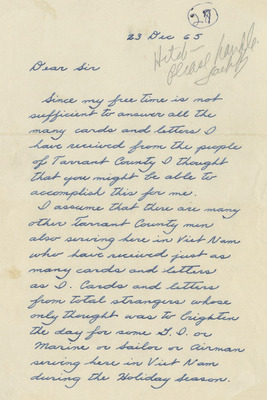 27
23 Dec 65
Hitch -
please handle
Dear Sir
Since my free time is not
sufficient to answer all the
many cards and letters I
have received from the people
of Tarrant County I thought
that you might be able to
accomplish this for me.
I assume that there are many
other Tarrant County men
also serving here in Viet Nam
who have received just as
many cards and letters
as I. Cards and letters
from total strangers whose
only thought was to brighten
the day for some G.I. or
Marine or Sailor or Airman
serving here in Viet Nam
during the Holiday Season.